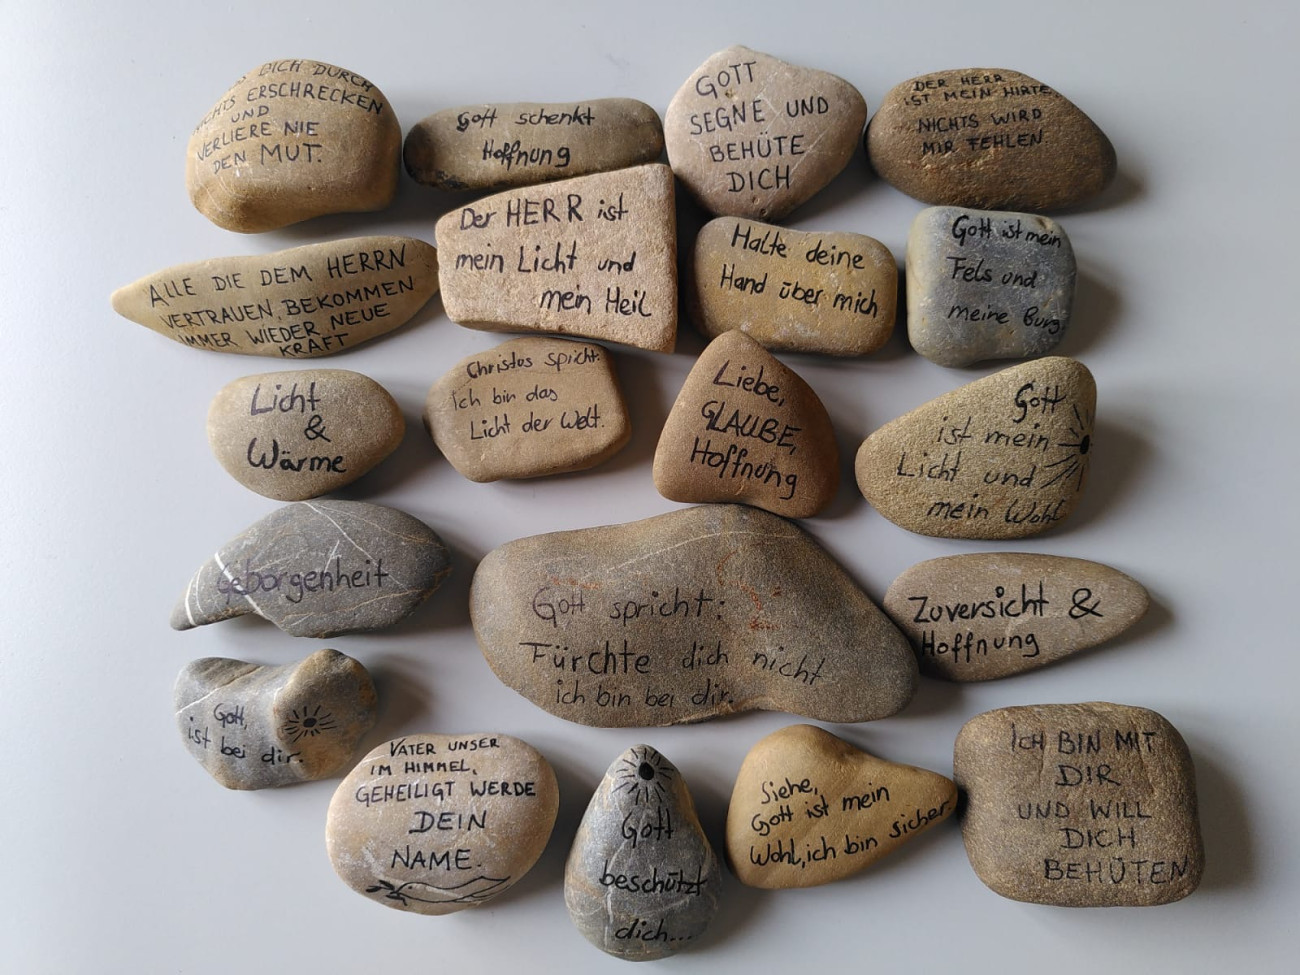 DICH DURCH
ERSCHRECKEN
UND
VERLIERE NIE
DEN MUT.
Gott schenkt
Hoffnung
GOTT
SEGNE UND
BEHÜTE
DICH
DER HERR
IST MEIN HIRTE
NICHTS WIRD
MIR FEHLEN
ALLE DIE DEM HERRN
VERTRAUEN, BEKOMMEN
IMMER WIEDER NEUE
KRAFT
Der HERR ist
mein Licht und
mein Heil
Halte deine
Hand über mich
Gott ist mein
Fels und
meine Burg
Licht
&
Wärme
Christus spricht:
Ich bin das
Licht der Welt.
Liebe,
GLAUBE,
Hoffnung
Gott
ist mein
Licht und
mein Wohl
Geborgenheit
Gott spricht:
Fürchte dich nicht
ich bin bei dir.
Zuversicht &
Hoffnung
Gott,
ist bei dir.
VATER UNSER
IM HIMMEL,
GEHEILIGT WERDE
DEIN
NAME.
Gott
beschützt
dich...
Siehe,
Gott ist mein
Wohl, ich bin sicher
ICH BIN MIT
DIR
UND WILL
DICH
BEHÜTEN